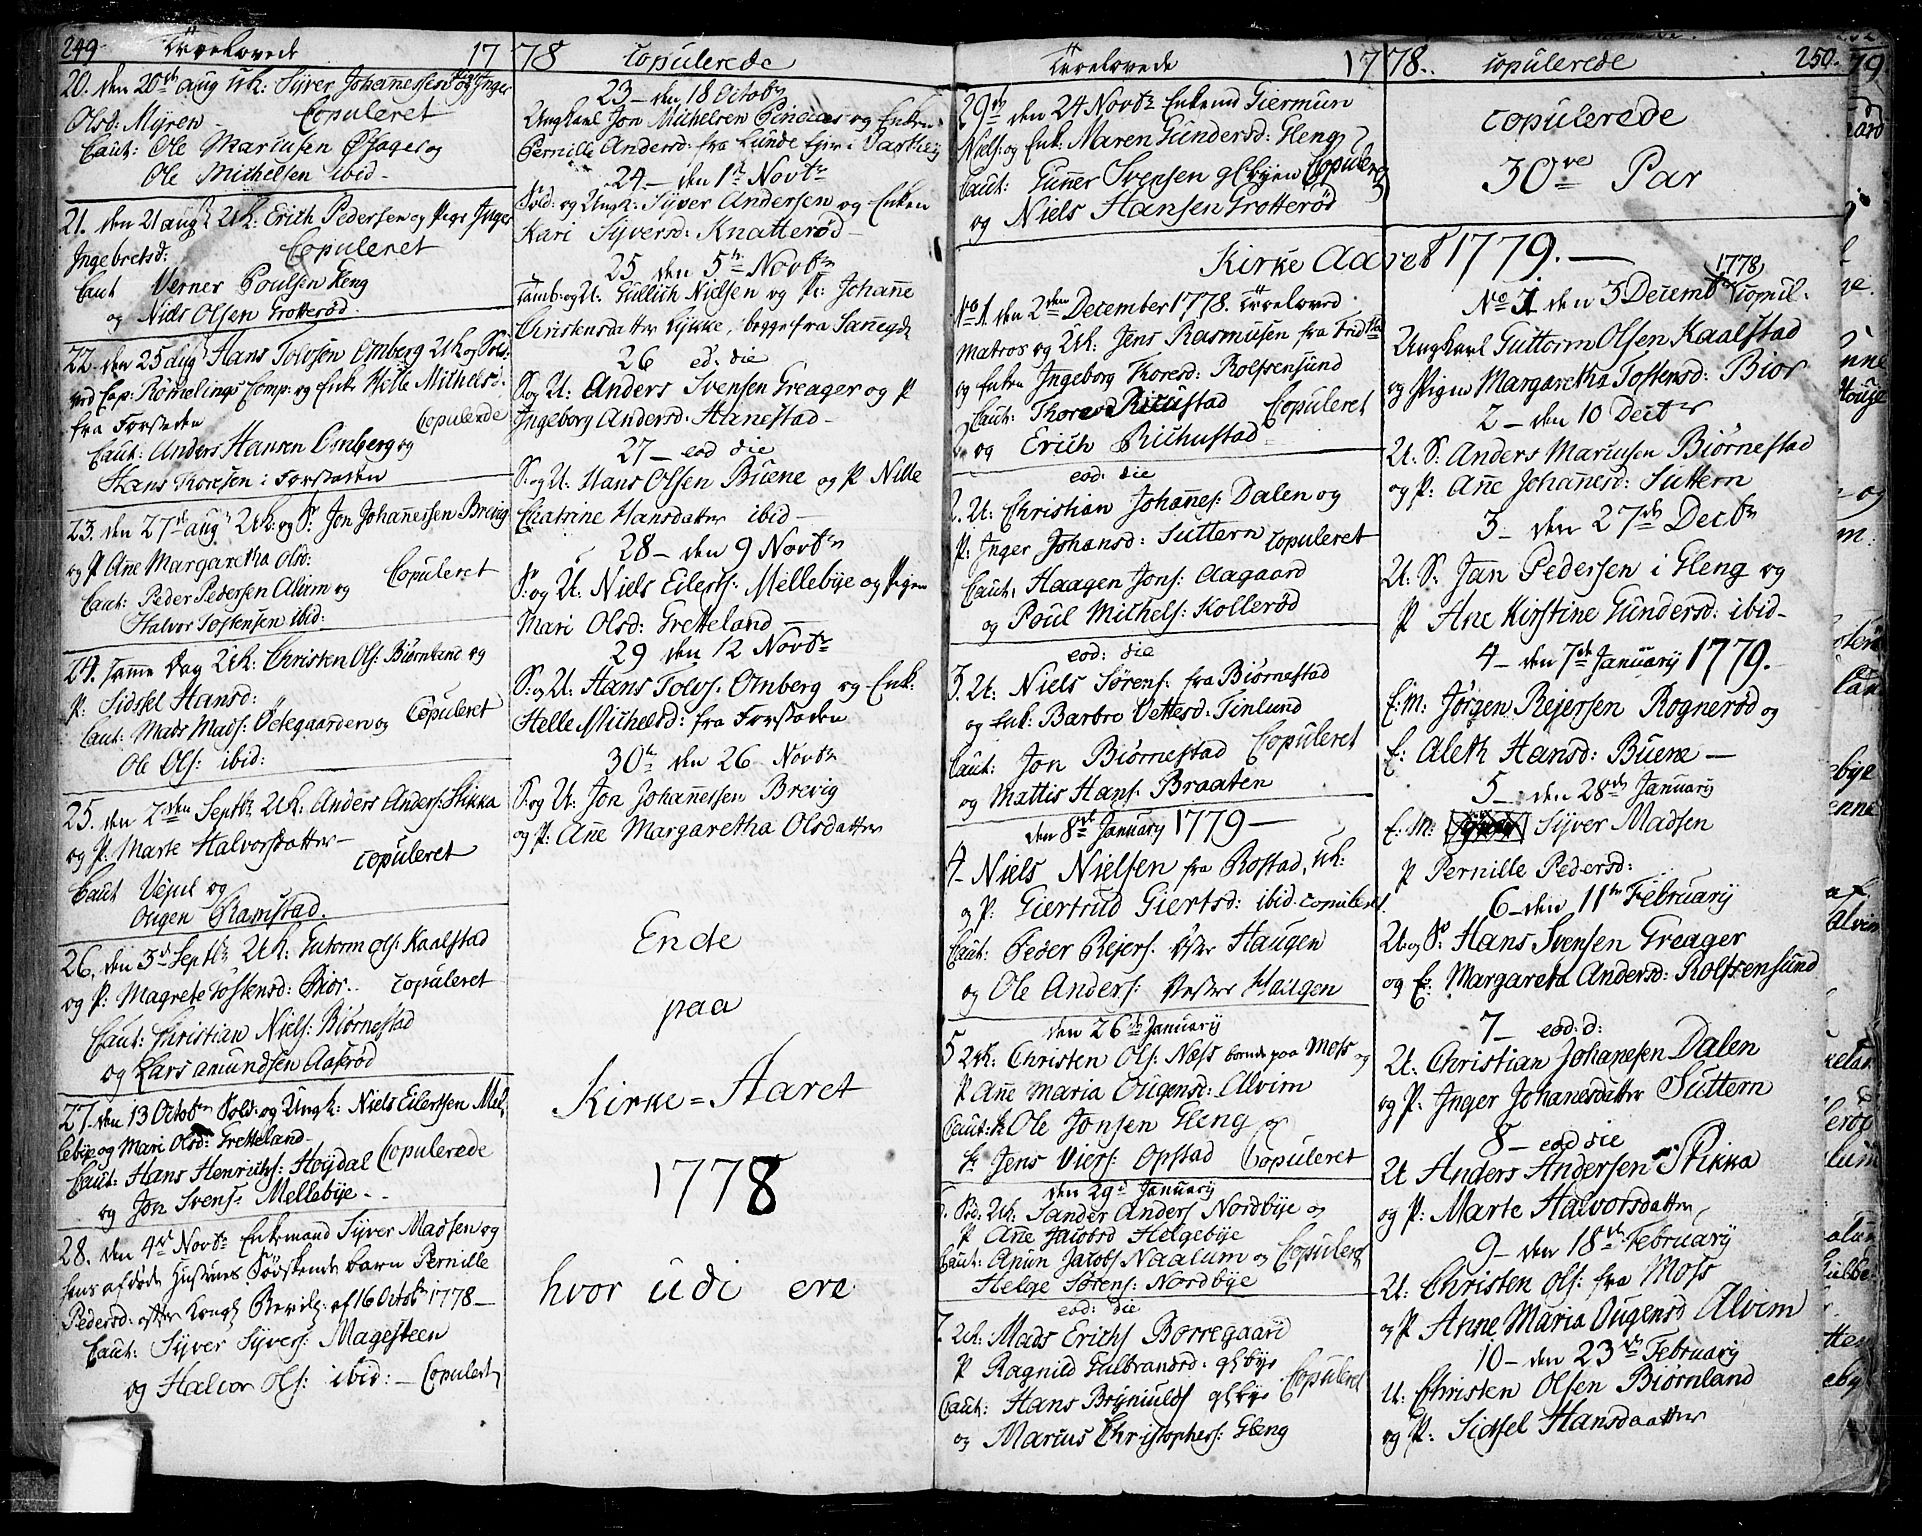 249 Troelovede 17
20. den 20de aug Uk: Syver Johannessen og Pige Inger
Olsd: Myren - Copuleret
Caut: Ole Marcusen Øhager og
Ole Michelsen ibid -
21. den 21 aug Uk: Erich Pedersen og Pige Inger
Ingebretsd: Copuleret
Caut Verner Poulsen Geng
og Niels Olsen Grotterød.
22. den 25 aug Hans Tolvsen Omberg Uk og Sold:
ved Cap: Römelings Comp: og Enk: Helle Michelsd:
fra Forstaden Copulerede
Caut: Anders Hansen Omberg og
Hans Thoresen i Forstaden
23. den 27de aug Uk: og S: Jon Johannessen Brevig
og P Ane Margaretha Olsd:
Caut: Peder Pedersen Alvim og Copuleret
Halvor Tostensen ibid:
24. samme Dag Uk: Christen Ols: Biørnland og
P: Sidssel Hansd:
Caut: Mads Mads: Ødegaarden og Copuleret
Ole Ols: ibid:
25. den 2den Septbr Uk: Anders Anders: Stikka
og P: Marte Halvorsdatter -
Caut Vejul og copuleret
Ougen Ramstad.
26. den 3de Septbr Uk: Gutorm Ols: Kaalstad
og P: Magrete Tostensd: Bior.. copuleret
Caut: Christian Niels: Biørnestad
og Lars Amundsen Aaserød
27. den 13 Octobr Sold: og Ungk: Niels Eilertsen Mel,
lebye og Mari Olsd: Gretteland -
Caut: Hans Henrichs: Høydal Copulerede
og Jon Svens: Mellebye - -
28. den 4de Novbr Enkemand Syver Madsen og
hans afdøde Hustrues Södskende barn Pernille
Pedersd: efter Kongl Bevilg: af 16 Octobr 1778 -
Caut: Syver Syvers: Magesteen
og Halvor Ols: ibid: - Copuleret
78 copulerede
23 - den 18 Octobr
Ungkarl Jon Michelsen Pindaes og Enken
Pernille Andersd: fra Lunde Ejer i Varteig
24 - den 1te Novbr
Sold: og Ungk: Syver Andersen og Enken
Kari Syversd: Knatterød -
25 den 5te Novbr
Tamb: og U: Gullich Nielsen og P: Johanne
Christensdatter Lykke, begge fra Sannegd:
26 ed: die
S: og U: Anders Svensen Greager og P
Ingeborg Andersd: Hanestad -
27 - eod die
S: og U: Hans Olsen Buene og P Nille
Chatrine Hansdatter ibid -
28 - den 9 Novbr
S: og U: Niels Eilers: Mellebye og Pigen
Mari Olsd: Gretteland -
29 den 12 Novbr
S: og U: Hans Tolvs: Omberg og Enk:
Helle Michelsd: fra Forstaden
30te den 26 Novbr
S: og U: Jon Johannessen Brevig
og P: Ane Margaretha Olsdatter
Ende
paa
Kirke = Aaret
1778
hvor udi ere
Troelovede 17
29de den 24 Novbr Enkemd Giermun
Niels: og Enk: Maren Gundersd: Gleng
Caut: Gunner Svensen glbyen Copuleret
og Niels Hansen Grotterød
78. copulerede 250.
copulerede
30ve Par
Kirke Aaret 1779. -
No 1. den 2den December 1778. Troeloved
Matros og Uk: Jens Rasmusen fra Fridst
og Enken Ingeborg Thoresd: Rolfsensund
Caut: Thore Richustad Copuleret
og Erich Richustad
eod: die
2. U: Christian Johanes: Dalen og
P: Inger Johansd: Suttern copuleret
Caut: Haagen Jons: Aagaard
og Poul Michels: Kollerød
eod: die
3. U: Niels Sørens: fra Biørnestad
og Enk: Barbro Vettesd: Tinlund
Caut: Jon Biørnestad Copuleret
og Mattis Hans: Braaten
den 8de January 1779 -
4 - Niels Nielsen fra Rostad, Uk:
og P: Giertrud Giertsd: ibid. copuleret.
Caut: Peder Rejers: öster Haugen
og Ole Anders: Vester Haugen
den 26de January
5 Uk: Christen Ols: Næss boende paa Moss og
P Ane Maria Ougensd: Alvim
Caut: Ole Jonsen Gleng og
Jens Viers: Opstad Copuleret
den 29de January
6. Sod: Uk: Sander Anders Nordbye og
P Ane Jacobsd Helgebye
Caut: Anun Jacobs Naalum og Copuleret
Helge Sørens: Nordbye
eod: die
7. Uk: Mads Erichs Borregaard
P Ragnild Gulbrandsd: glbye
Caut: Hans Bryniulds glbye Copuleret
og Marcus Christophers: Gleng
1778
No 1 den 3 Decembr Copul:
Ungkarl Guttorm Olsen Kaalstad
og Pigen Margaretha Tostensd: Bior
2 - den 10 Decbr
U: S: Anders Marcusen Biørnestad
og P: Ane Johannesd: Suttern
3 - den 27de Decbr
U: S: Jan Pedersen i Gleng og
P Ane Kirstine Gundersd: ibid -
4 - den 7de January 1779.
E: M: Jørgen Rejersen Rognerød og
E: Aleth Hansd: Buene -
5 - den 28de January
E: M: Syver Madsen
P Pernille Pedersd:
6 - den 11te February
U: og S: Hans Svensen Greager
og E: Margareta Andersd: Rolfsensund
7 - eod: d:
U: Christian Johanesen Dalen
og P: Inger Johanesdatter Suttern
8 - eod die
U Anders Andersen Stikka
og P: Marte Halvorsdatter
9 - den 18de February
U: Christen Ols: fra Moss
og P Anne Maria Ougensd Alvim
10 - den 23de February
U: Christen Olsen Biørnland
og P: Sidsel Hansdaatter